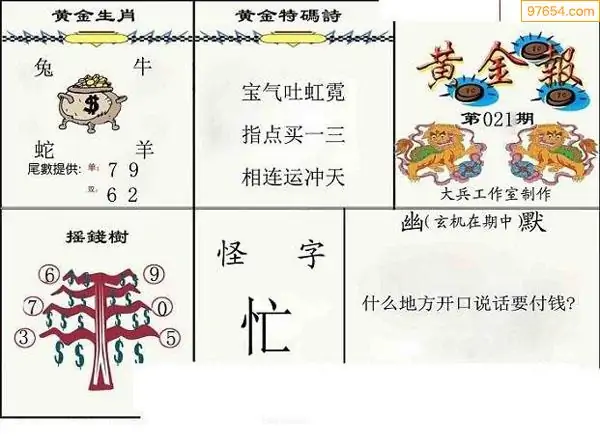 97654.com
黄金生肖
兔 牛
$
蛇 羊
尾數提供: 单: 7 9
双: 6 2
黄金特碼詩
宝气吐虹霓
指点买一三
相连运冲天
黄金報
第021期
大兵工作室制作
摇錢樹
6 9
7 0
3 5
$ $ $ $
怪 字
忙
幽(玄机在期中)默
什么地方开口说话要付钱?